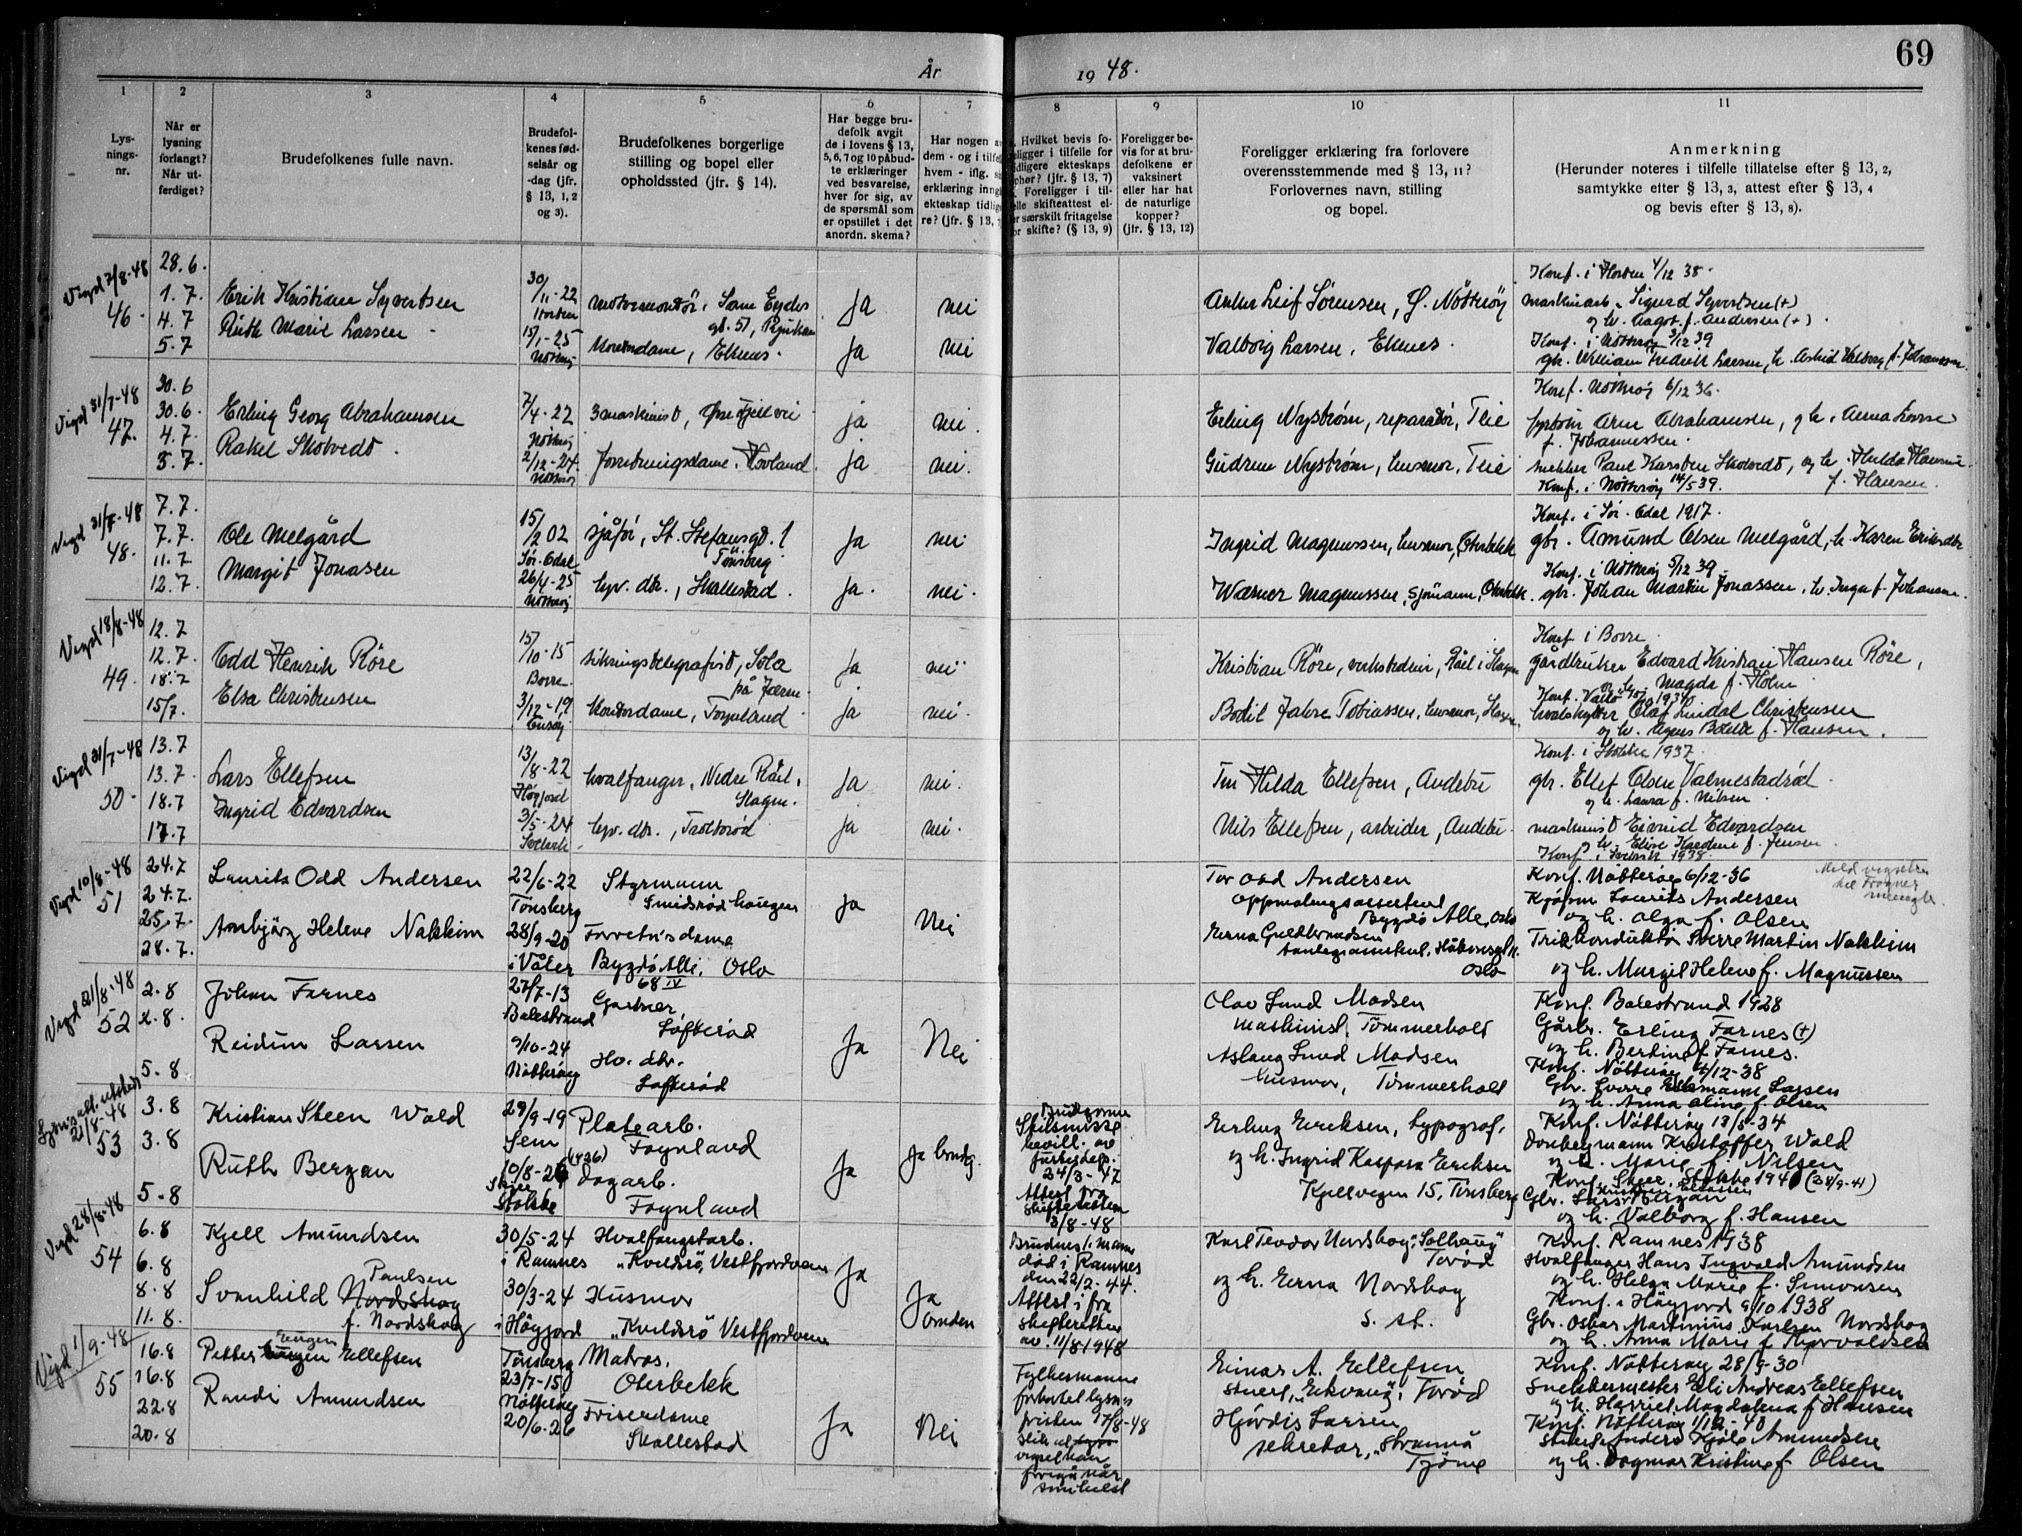 År 1948.
69
1
2
3
4
5
6
7
8
9
10
11
Lys-
nings-
nr.
Når er
lysning
forlangt?
Når ut-
ferdiget?
Brudefolkenes fulle navn.
Brudefol-
kenes fød-
selsår og
-dag (jfr.
§ 13, 1, 2
og 3).
Brudefolkenes borgerlige
stilling og bopel eller
opholdssted (jfr. § 14).
Har begge bru-
defolk avgit
de i lovens § 13,
5, 6, 7 og 10 påbud-
te erklæringer
ved besvarelse,
hver for sig, av
de spørsmål som
er opstillet i det
anordn. skema?
Har nogen
dem - og i
hvem - iflg.
erklæring
ekteskap
re? (jfr. § 13,
Hvilket bevis fo-
religger i tilfelle for
tidligere ekteskaps
ophør? (jfr. § 13, 7)
Foreligger i til-
felle skifteattest el-
ler særskilt fritagelse
for skifte? (§ 13, 9)
Foreligger be-
vis for at bru-
defolkene er
vaksinert
eller har hat
de naturlige
kopper?
(jfr. § 13, 12)
Foreligger erklæring fra forlovere
overensstemmende med § 13, 11?
Forlovernes navn, stilling
og bopel.
Anmerkning
(Herunder noteres i tilfelle tillatelse efter § 13, 2,
samtykke efter § 13, 3, attest efter § 13, 4
og bevis efter § 13, 8).
Vigd 7/8-48
46.
28.6.
1.7.
4.7
5.7
Erik Kristian Syvertsen
Ruth Marie Larsen
30/11-22
Horten
15/1-25
Nøtterøy
motormontør, Sam Eydes
gt. 51, Rjukan
Kontordame, Ekenes.
ja
ja
nei
nei
Anker Leif Sørensen, Ø. Nøtterøy
Valborg Larsen, Ekenes.
Konf. i Horten 4/12 38.
maskinarb. Sigurd Syvertsen (+)
og h. Aagot f. Andersen (+).
Konf. i Nøtterøy 3/12 39
gbr. William Fredrik Larsen, h. Astrid Valborg f. Johansen.
Vigd 31/7-48
47.
30.6
30.6.
4.7.
5.7.
Erling Georg Abrahamsen
Rakel Skotvedt.
7/4-22
Nøtterøy
2/12-24.
Nøtterøy
3 maskinist, Øre Fjellvei
forretningsdame, Hovland.
ja
ja
nei.
nei.
Erling Nystrøm, reparatør, Teie
Gudrun Nystrøm, husmor, Teie
Konf. Nøtterøy 6/12 36.
fyrbøter Arne Abrahamsen, og h. Anna Lovise
f. Johannessen.
snekker Paul Karsten Skotvedt, og h. Hulda Hansine
f. Hansen.
Konf. i Nøtterøy 14/5 39.
Vigd 31/7-48
48.
7.7.
7.7.
11.7
12.7.
Ole Melgård
Margit Jonasen
15/2 02
Sør-Odal
26/4-25
Nøtterøy
sjåfør, St. Stefansgt. 1
Tønsberg
hjv. dtr., Skallestad.
ja
ja.
nei
nei.
Ingrid Magnussen, husmor, Oterbekk
Warner Magnussen, sjømann, Oterbekk.
Konf. i Sør-Odal 1917.
gbr. Amund Olsen Melgård, h. Karen Eriksdtr
Konf. i Nøtterøy 3/12 39.
gbr. Johan Martin Jonassen, h. Inga f. Johansen.
Vigd 18/8-48
49.
12.7
12.7.
18.7
15/7.
Odd Henrik Røre
Elsa Christensen
15/10-15
Borre.
3/12-19
sikringstelegrafist, Sola
på Jæren.
Kontordame, Føynland
ja
ja
nei
nei.
Kristian Røre, verksteder, Råel i Slagen
Bodil Jahre Tobiassen, husmor, Slagen
Konf. i Borre.
gårdbruker Edvard Kristian Hansen Røre,
og h. Magda f. Holm
Konf. Vallø 1934
hvalskytter Olaf Lindal Christensen
og h. Agnes Bolette f. Hansen.
Vigd 31/7-48
50.
13.7
13.7.
18.7
17.7
Lars Ellefsen
Ingrid Edvardsen
13/8-22
Høyjord
3/5-24
Svelvik
hvalfanger, Nedre Råel,
Slagen.
hjv. dtr., Trolterød
ja
ja
nei.
nei.
Fru Hilda Ellefsen, Andebu
Nils Ellefsen, arbeider, Andebu.
Konf. i Stokke 1937.
gbr. Ellef Olsen Valmestadrød
og h. Laura f. Nilsen.
maskinist Eivind Edvardsen
og h. Elise Karoline f. Jensen.
Konf. i Svelvik 1938.
Vigd 10/8-48
51
24.7
24.7.
25.7.
28.7.
Laurits Odd Andersen
Arnbjørg Helene Nakkim
22/6-22
Tønsberg
28/9-20
i Våler
Styrmann
Smidsrød haugen
Forretn's dame
Bygdø Allé, Oslo
68 IV
Ja
Nei
Tor Odd Andersen
Oppmålingsassistent
Bygdø Alle, Oslo
Erna Guldbrandsen
Oslo
Konf. Nøtterøy 6/12-36
Kjøpm Laurits Andersen
og h. Olga f. Olsen
Trikkonduktør Sverre Martin Nakkim
og h. Margit Helene f. Magnussen
Meld vigselen
til Frogner
menigh.
Vigd 21/8-48
52
2.8
2.8.
5.8
Johan Farnes
Reidun Larsen
27/7-13
Balestrand
9/10-24
Nøtterøy
Gartner,
Lofterød
Hv. dtr.
Lofterød
Ja
Nei
Olav Lund Madsen
maskinist, Tømmerholt
Aslaug Lund Madsen
husmor, Tømmerholt
Konf. Balestrand 1928
Gårbr. Erling Farnes (+)
og h. Bertine f. Farnes.
Konf. Nøtterøy 4/12-38
Gbr. Sverre Edmann Larsen
og h. Anna Oline f. Olsen
Lysn's att. utsted
21/8-48
53
3.8
3.8
5-8
Kristian Skeen Wold
Ruth Bergan
29/9-19
Sem
10/8-26 (1926)
Skjee
Stokke
Platearb.
Føynland
Dagarb.
Føynland
Ja
Ja brudg.
Brudgomm
Skilsmisse
bevill. av
Justisdep.
24/3-47
Attest fra
skifteretten
3/8-48
Erling Eriksen, typograf,
og h. Ingrid Kaspara Eriksen
Kjellvegen 15, Tønsberg
Konf. Nøtterøy 13/5-34
Kristoffer Wold
og h. Marie f. Nilsen
Konf. Skjee, Stokke 1941 (28/9-41)
Gbr. Lars Bergan
og h. Valborg f. Hansen
Vigd 28/8-48
54
6.8
6.8
8.8
11.8.
Kjell Amundsen
Svanhild Nordskog
Paulsen
f. Nordskog
30/5-24
i Ramnes
30/3-24
i Høyjord
Hvalfangstarb.
"Kveldsrø", Vestfjordveien
Husmor
"Kveldsrø" Vestfjordveien
Ja
Ja
bruden
Brudens 1. mann
død i Ramnes
den 22/2-44.
Attest i fra
skifteretten
av 11/8 1948
Karl Teodor Nordskog, "Solhaug"
Torød
og h. Erna Nordskog
s. st.
Konf. Ramnes 1938
Hvalfanger Hans Ingvald Amundsen
og h. Helga Marie f. Simonsen
Konf. i Høyjord 9/10 1938
Gbr. Oskar Martinius Karlsen Nordskog
og h. Anna Marie f. Thorvaldsen
Vigd 1/9-48
55
16.8
16.8
22.8
20.8
Petter Eugen Ellefsen
Eugen
Randi Amundsen
Tønsberg
23/7-15
Nøtterøy
20/6-26
Matros,
Oterbekk
Friserdame
Skallestad
Ja
Nei
Fylkesmannen
forkortet lysnings
fristen 17/8-48
slik at
vigsel kan
foregå når
som helst
Einar A. Ellefsen
stuert, "Ekvang", Torød
Hjørdis Larsen
sekretær, "Strannå"
Tjøme
Konf. Nøtterøy 28/9-30
Snekkermester Eli Andreas Ellefsen
og h. Harriet Magdalena f. Hansen
Konf. Nøtterøy 1/12-40
Stuert Anders Hjols Amundsen
og h. Dagmar Kristine f. Olsen